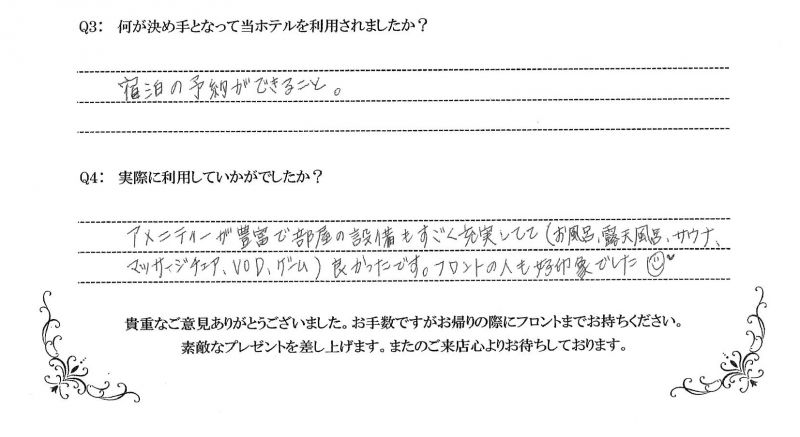 Q3： 何が決め手となって当ホテルを利用されましたか？
宿泊の予約ができること。
Q4： 実際に利用していかがでしたか？
アメニティーが豊富で部屋の設備もすごく充実してて（お風呂、露天風呂、サウナ、
マッサージチェア、VOD、ゲーム）良かったです。フロントの人も好印象でした
貴重なご意見ありがとうございました。お手数ですがお帰りの際にフロントまでお持ちください。
素敵なプレゼントを差し上げます。またのご来店心よりお待ちしております。